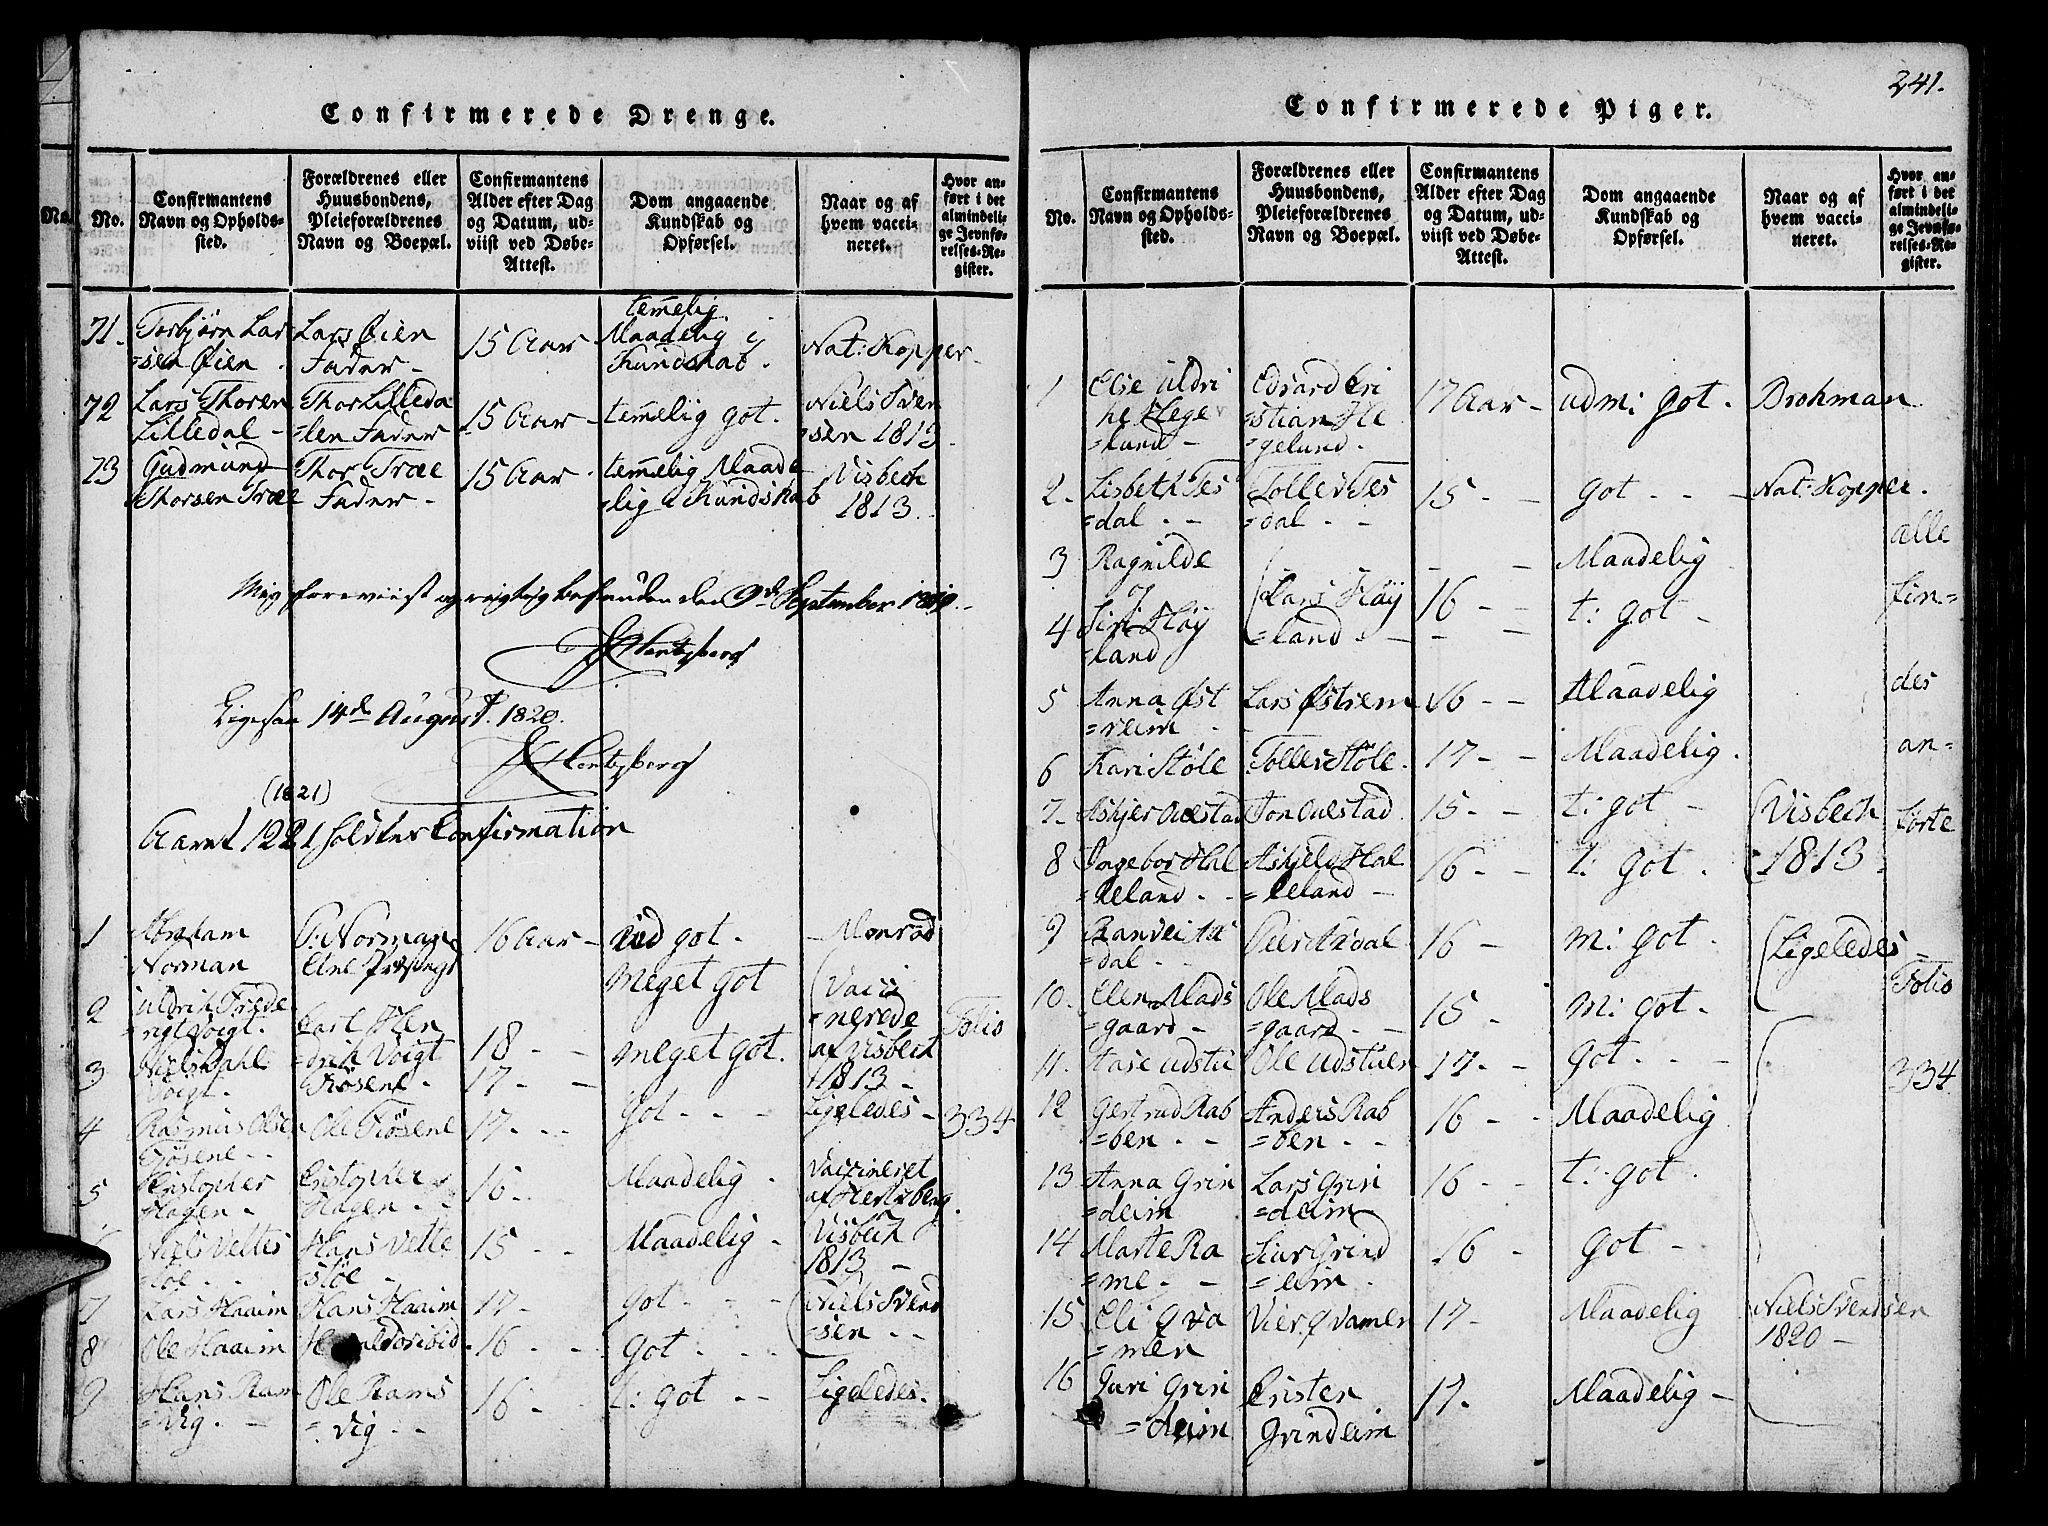 Confirmerede Drenge.
No.
No.
Confirmantens
Navn og Opholds-
sted.
Forældrenes eller
Huusbondens,
Pleieforældrenes
Navn og Boepæl.
Confirmantens
Alder efter Dag
og Datum, ud-
viist ved Døbe-
Attest.
Dom angaaende
Kundskab og
Opførsel.
Naar og af
hvem vacci-
neret.
Hvor an-
ført i det
almindeli-
ge Jevnfø-
relses-Re-
gister.
71. Torbjørn Lar
=sen Øien.
Lars Øien
Fader -
15 Aar
temelig
Maadelig i
Kundskab.
Nat: Kopper -
72 Lars Thorsen
Lilledal -
Thor Lilleda
=len Fader
15 Aar -
temelig got.
Niels Sven
=sen 1813.
73 Gudmund
Thorsen Træe
Thor Træe
Fader -
15 Aar.
temelig Maade
=lig i Kundskab
Visbech
1813.
Mig foreviist og rigtig befunden den 9de September 1819.
Hertzberg
Ligesaa 14de August 1820.
Hertzberg
(1821)
Aaret 1821 holdtes Confirmation
1 Abraham
Norman
P: Norman
Etne Præstegd
16 Aar -
got.
- Monrad
2 Uldrik Frede
=rigt Voigt.
Carl Hen
=drik Voigt
18 - -
meget got
Vacci
=nerede
af Visbech
1813 -
Folio
3 Niels Dahl
Voigt.
Tøsene -
17 - -
meget got.
4 Rasmus Olsen
Tøsene - -
Ole Tøsene
17 - - -
Got - - -
Ligeledes -
334
5 Christopher
Hagen -
Cristopher
Hagen - -
16 -
Maadelig.
Vaccineret
af Hertzberg.
Niels Vettes
=tøe - -
Hans Vette
=støe -
15 - -
Maadelig -
Visbech
1813 -
7 Lars Haaim
Hans Haaim
17 -
got - - -
Niels Svend
=sen - -
8 Ole Haaim
16 - -
Got - - -
9 Hans Ram
=vig. -
Ole Rams
=vig - -
16 -
t: got - -
Ligeledes.
241.
Confirmerede Piger.
No.
Confirmantens
Navn og Opholds-
sted.
Forældrenes eller
Huusbondens,
Pleieforældrenes
Navn og Boepæl.
Confirmantens
Alder efter Dag
og Datum, ud-
viist ved Døbe-
Attest.
Dom angaaende
Kundskab og
Opførsel.
Naar og af
hvem vacci-
neret.
Hvor an-
ført i det
almindeli-
ge Jevnfø-
relses-Re-
gister.
1 Else Uldri
ke Hege
=lund -
Edvard Cri
=stian He
gelund.
17 Aar -
udm: got.
Brohman
2 - Lisbeth Tes
=dal - -
Tollev Tes
=dal - -
15 - -
got - - -
Nat: Kopper.
alle
3 Ragnilde
og
Maadelig
4 Siri Høy
=land
Hans Høy
=land -
16 - -
t: got -
fin=
5 Anna Øst
=reim -
Lars Østrem
16 - -
Maadelig
des
6 Kari Støle
Tollev Støle.
17 - -
Maadelig.
an=
7 - Askjer Aulstad
Jon Aulstad
15 - -
t: got -
Visbech
1813.
førte
8 Ingebor Hal
=leland. -
Askjeld Hal
=leland -
16 - -
t: got.
9 Ranvei Aa
=dal - -
Peer Aadal
16 -
m: got.
Ligeledes
10. Elen Mads
=gaard -
Ole Mads
=gaard - -
15 -
m: got.
Folio
11. Aase Udstu
Ole Udstuen
17 - -
Got - - -
334
12 Gertrud Rab
=ben - -
Anders Rab
=ben - -
16 - -
Maadelig
13 Anna Grin
=deim
Lars Grin
=deim
16 - -
t: got -
14 Marte Ra
=me - -
Siur Grind
=eim.
16 -
got -
15 Eli Qva
=men
Vier Qvamen
17 -
Maadelig
Niels Svendsen
1820 -
16 Guri Grin
=deim
Crister
Grindeim
17 -
Maadelig -